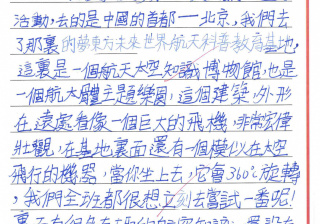 活動，去的是中國的首都——北京，我們去
了那裏的夢東方未來世界航天科普教育基地，
這裏是一個航天太空知識博物館，也是
一個航太體主題樂園，這個建築，外形
在遠處看像一個巨大的飛機，非常宏偉
壯觀，在基地裏面還有一個模似在太空
飛行的機器，當你坐上去，它會360°旋轉
，我們全班都很想立刻去嘗試一番呢！